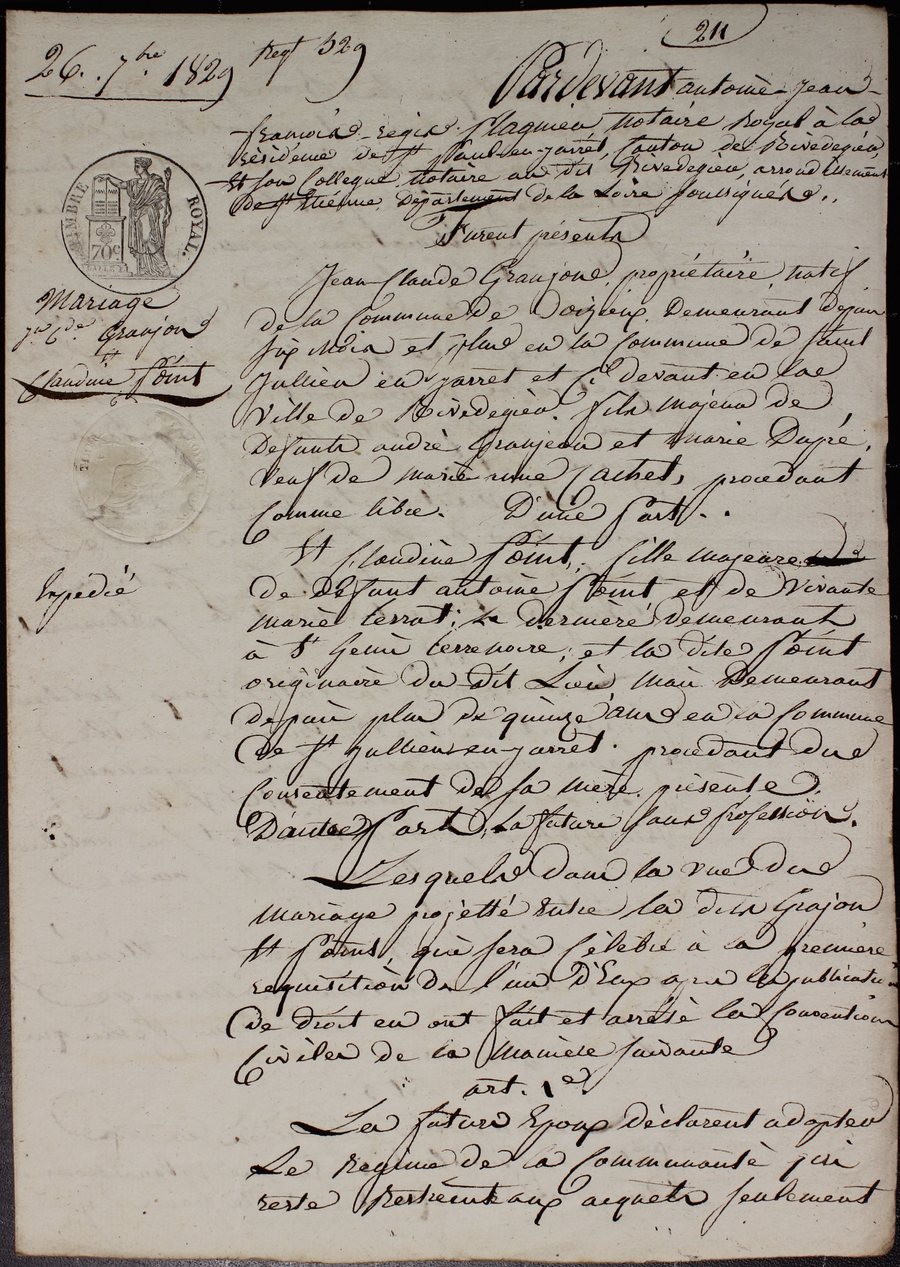 211
26. 7bre 1829
Regt 329
TIMBRE ROYAL.
70c
Mariage
jn Cde Granjon
et
Claudine Point
Expedié
Pardevant antoine-jean-
françois-regis flagmier Notaire Royal à la
Résidence de St Paul-en-jarrêt, Canton de Rivedegier,
et son Collegue Notaire au dit Rivedegier, arrondissement
de St Etienne, Département de la Loire soussignés..
Furent présents
Jean-Claude Granjon, propriétaire, natif
de la Commune de Doizieux, Demeurant depuis
six mois et plus en la Commune de saint
Jullien en jarret et ci devant en la
Ville de Rivedegier. fils majeur de
Defunts andré Granjon et marie Dupré,
veuf de marie anne Cachet, procedant
comme libre. D'une Part.
Et Claudine Point, fille majeure
de Défunt antoine Point et de vivante
marie Terrat; La derniere demeurant
à St Genis terrenoire; et la dite Point
originaire du dit Lieu, mais Demeurant
depuis plus de quinze ans en la Commune
de St Jullien-en-jarret. procedant du
Consentement de sa mère présente.
D'autre Part, La future sans Profession.
Lesquels dans la vue du
mariage projetté entre les dits Grajon
et Point, qui sera Célébré à la premiere
requisition de l'un D'Eux après les publications
de droit en ont fait et arrêté les Conventions
Civiles de la Maniere suivante
art. 1er
Les futurs Epoux déclarent adopter
Le Regime de la Communauté
reste Restreinte aux acquets seulement